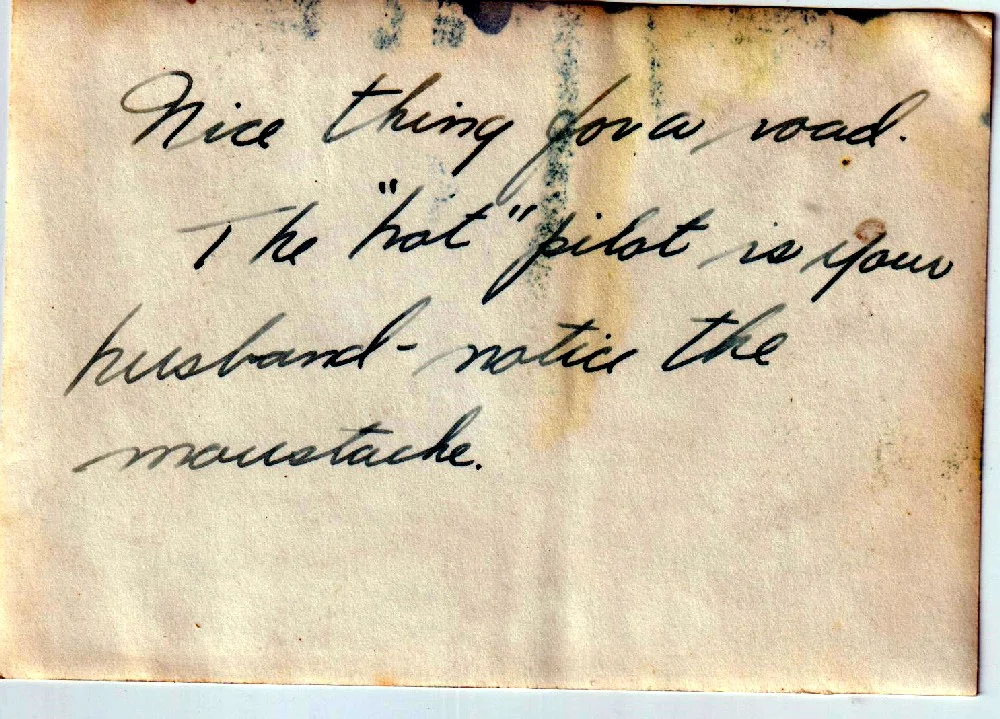 Nice thing for a road.
The "hot" pilot is your
husband - notice the
moustache.